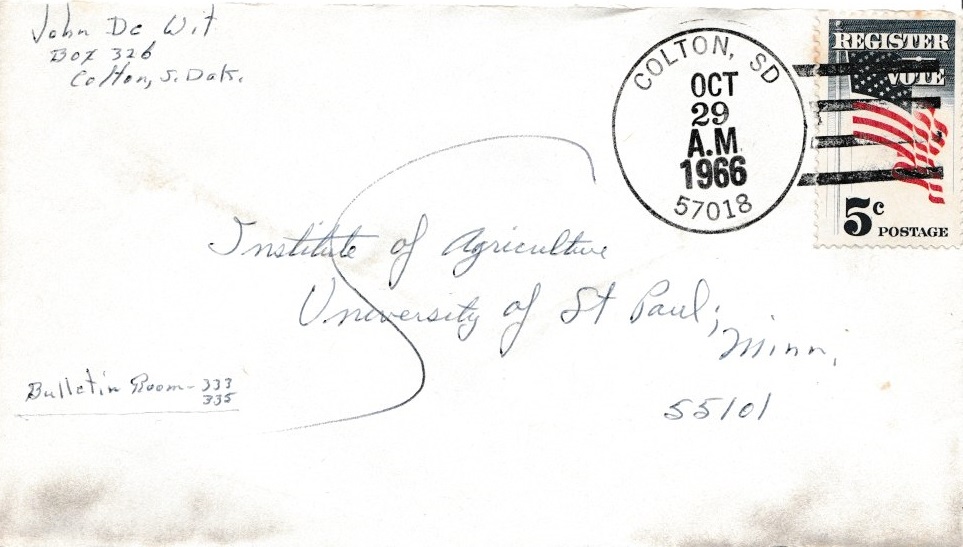 John De Wit
Box 326
Colton, S. Dak.
COLTON, SD
OCT
29
A.M.
1966
57018
REGISTER
VOTE
5c
POSTAGE
Institute of Agriculture
University of St Paul,
Minn.
55101
Bulletin Room - 333
335